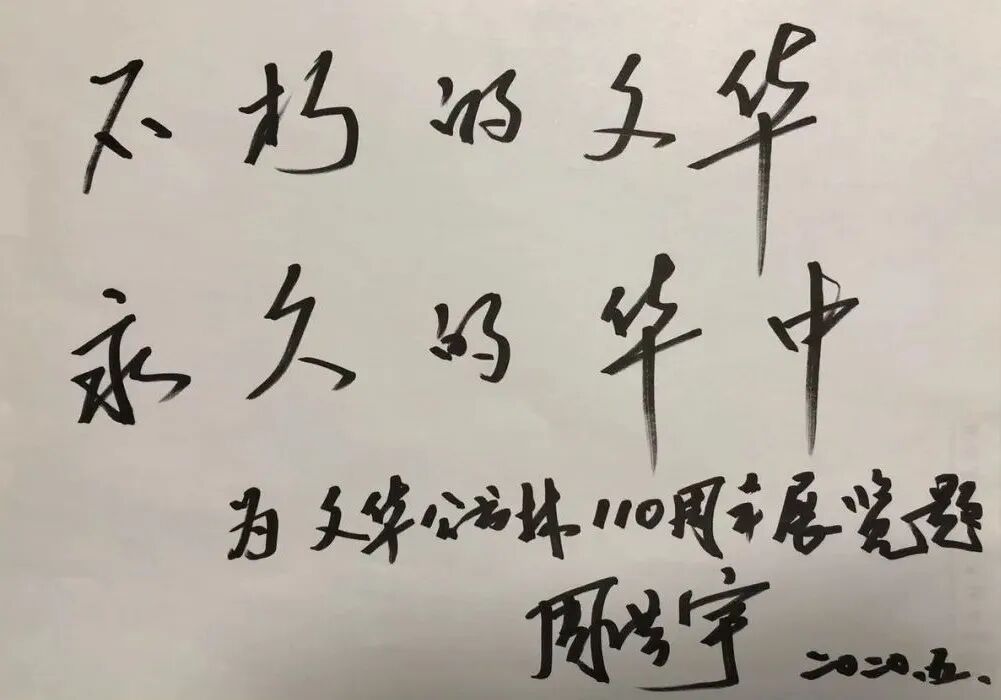 不朽的文华
永久的华中
为文华公书林110周年展览题
周洪宇 二〇二〇.五.